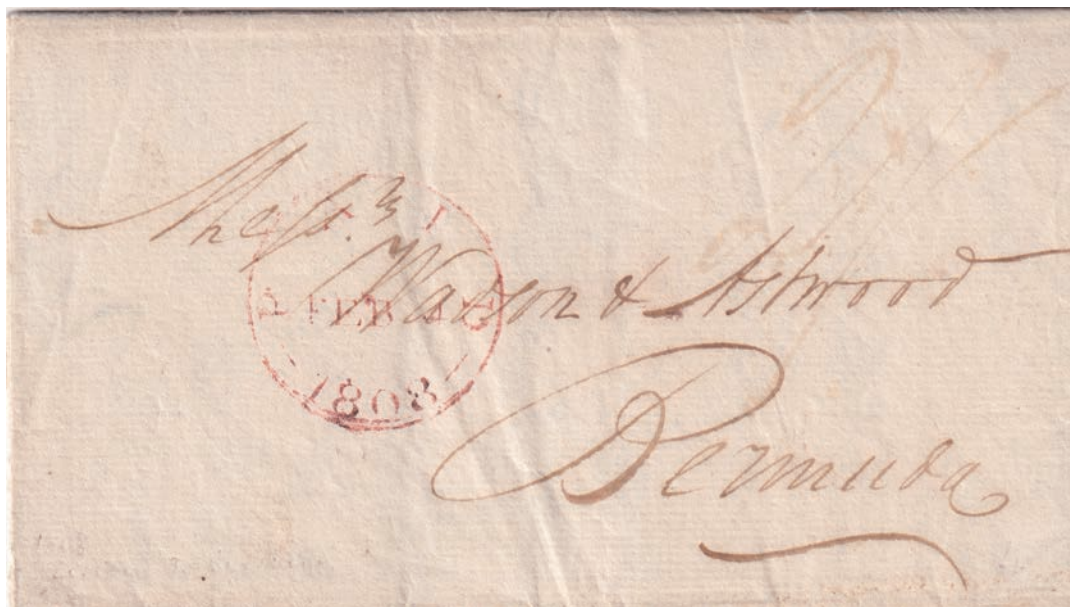 Mess.rs
Watson & Astwood
Bermuda
FEB
1808